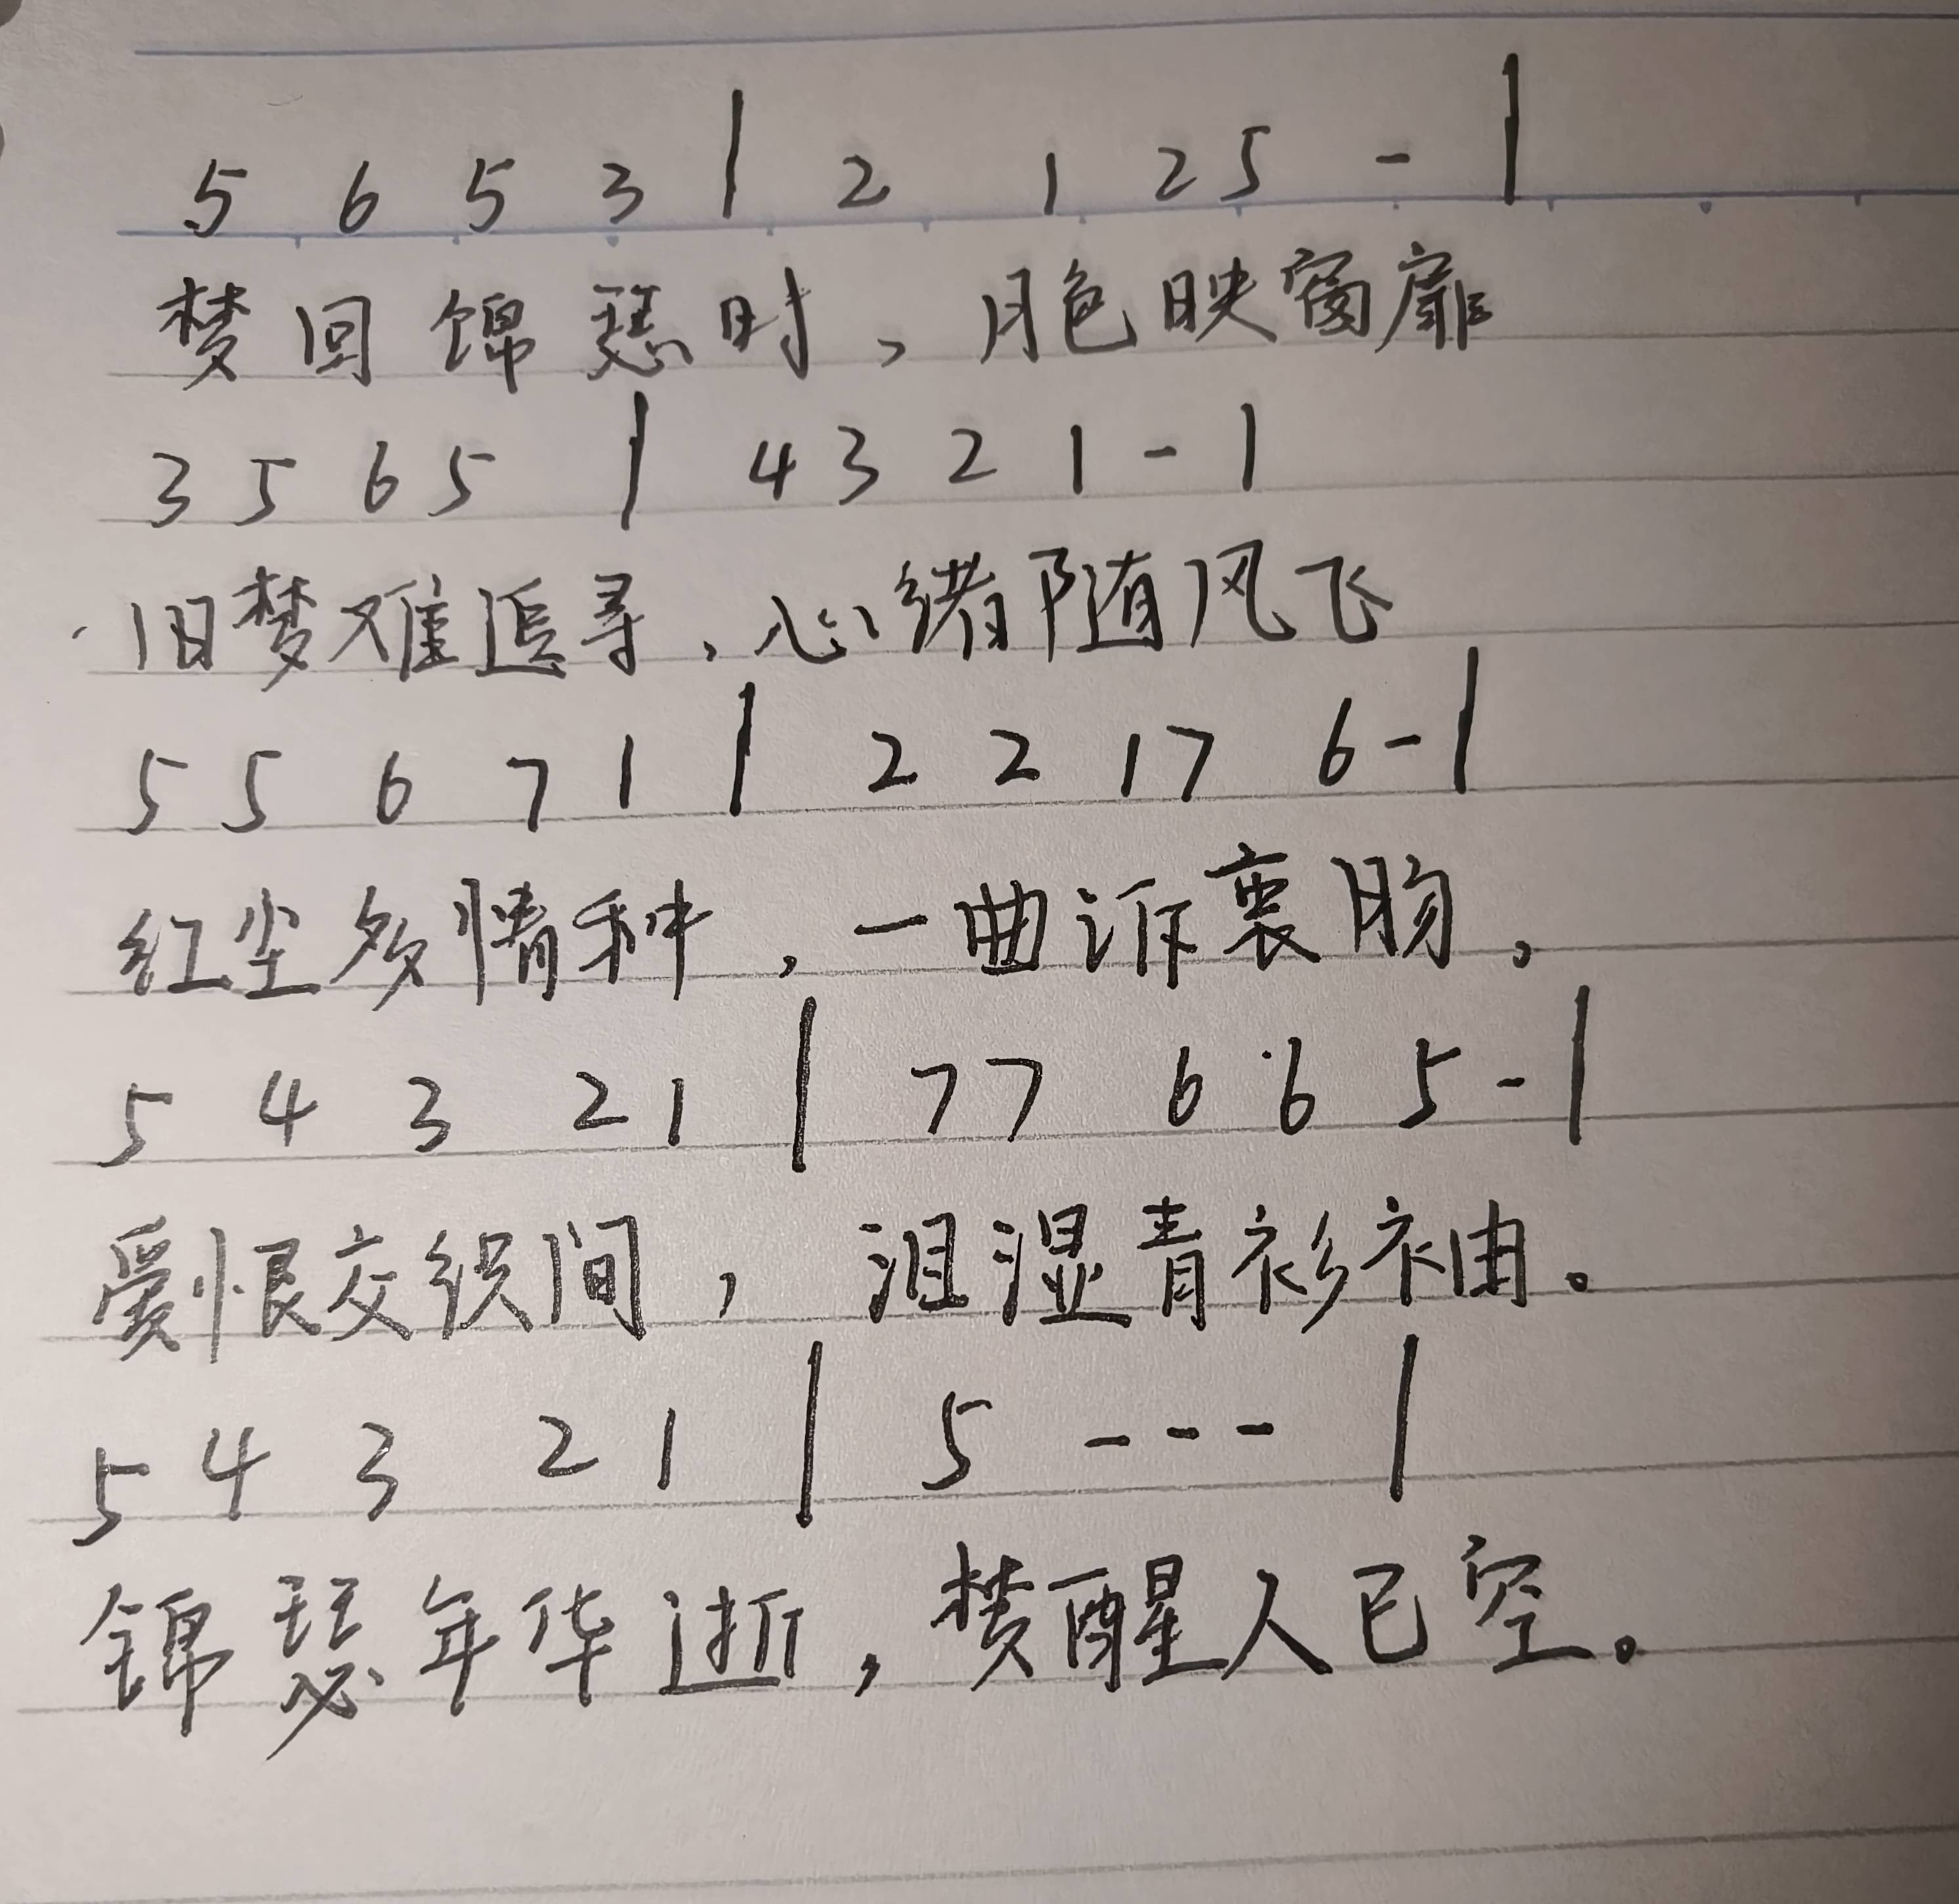 5 6 5 3 | 2 1 2 5 - |
梦回锦瑟时，月色映窗扉
3 5 6 5 | 4 3 2 1 - |
旧梦难追寻，心绪随风飞
5 5 6 7 1 | 2 2 1 7 6 - |
红尘多情种，一曲诉衷肠，
5 4 3 2 1 | 7 7 6 6 5 - |
爱恨交织间，泪湿青衫袖。
5 4 3 2 1 | 5 - - - |
锦瑟年华逝，梦醒人已空。